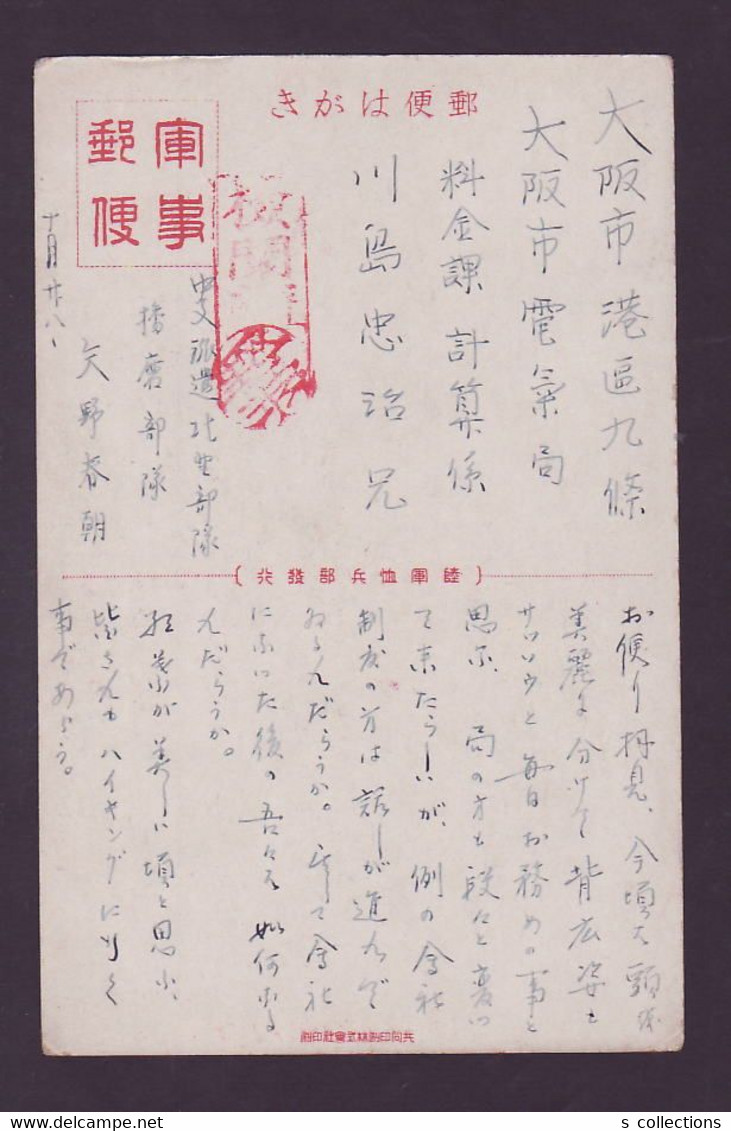 郵便はがき
軍事
郵便
検閲
大阪市港區九條
大阪市電氣局
料金課計算係
川島忠治兄
中支派遣北野部隊
播磨部隊
矢野春朝
十月廿八、
陸軍恤兵部發行
お便り拝見、今頃は頭を
美麗に分けて背広姿も
サッソウと毎日お務めの事と
思ふ、局の方も段々と変つ
て来たらしいが、例の會社
制度の方は話しが進んで
ゐるんだらうか。そして會社
になつた後の吾々は如何なる
んだらうか。
紅葉が美しい頃と思ふ、
皆さんもハイキングに行く
事であらう。
共同印刷株式會社印刷
s collections